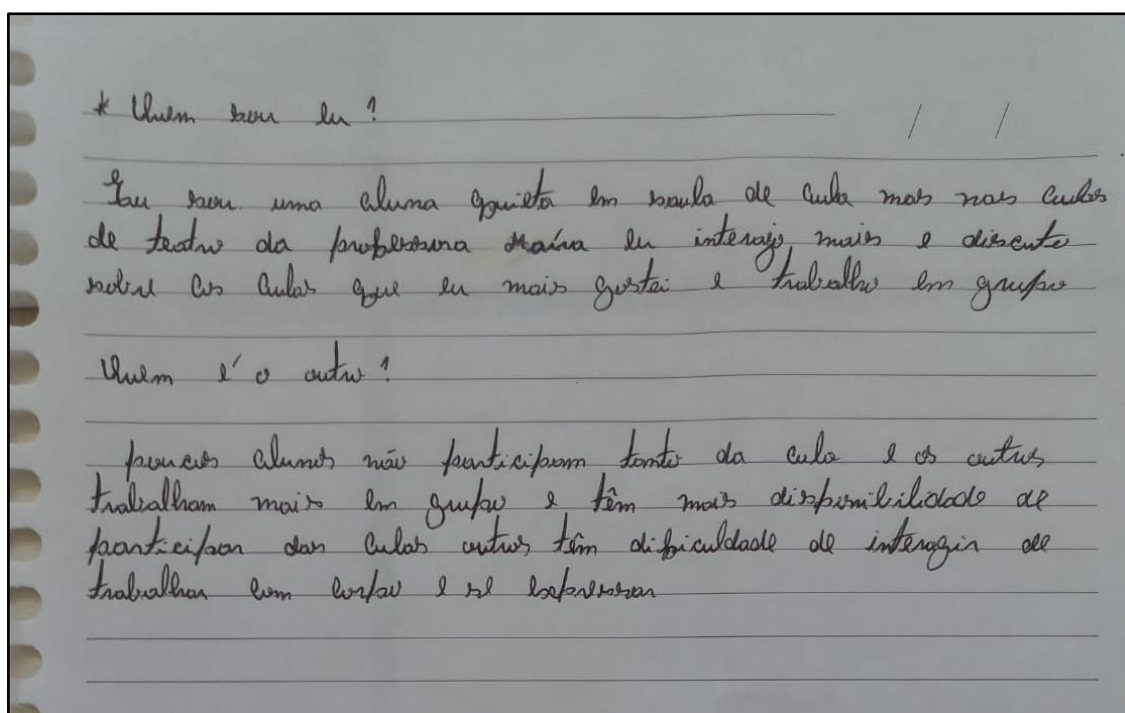 * Quem sou eu?
/ /
Eu sou uma aluna quieta em saula de aula mas nas aulas
de teatro da professora Maína eu interajo mais e discuto
sobre as aulas que eu mais gostei e trabalho em grupo
Quem é o outro?
poucos alunos não participam tanto da aula e os outros
trabalham mais em grupo e têm mais disponibilidade de
participar das aulas outros têm dificuldade de interagir de
trabalhar com corpo e se expressar